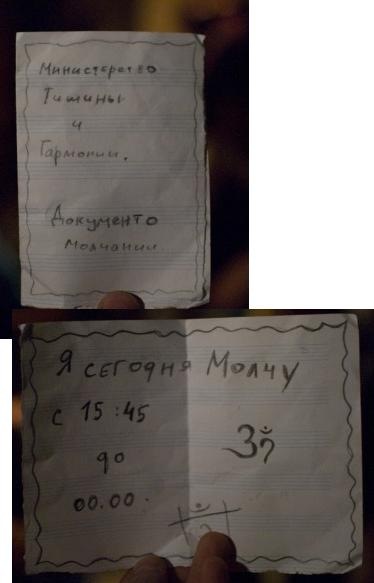 Министерство
Тишины
и
Гармонии.
Документо
молчании
Я сегодня Молчу
с 15:45
до
00.00.
ॐ